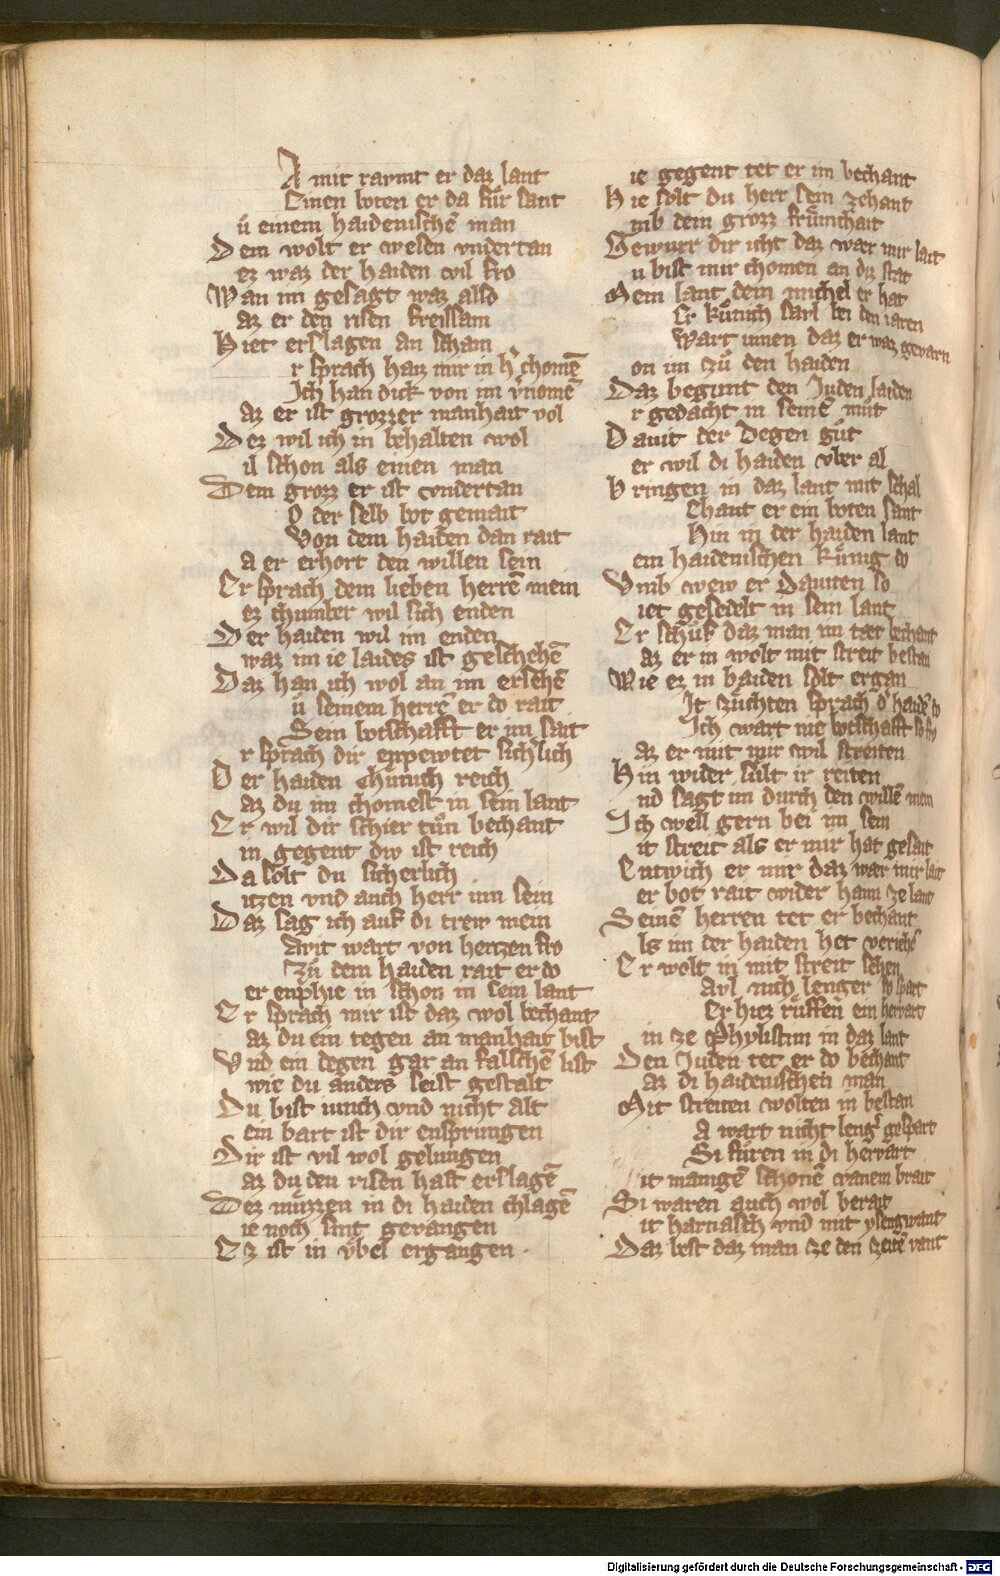 A mit raymt er daz lant
Einen boten er da für sant
ů einem haidenischē man
Dem wolt er wesen vndertan
ez waz der haiden vil fro
Wan im gesagt waz also
az er den risen freissam
Hiet erslagen an scham
r sprach haiz mir in hˀ chomē
Ich han dick von im vˀnomē
az er ist grozzer manhait vol
Dez wil ich in behalten wol
il schon als einen man
Dem grozz er ist vndertan
O der selb bot gemait
Von dem haiden dan rait
a er erhort den willen sein
Er sprach dem lieben herrē mein
ez chumber wil sich enden
Der haiden wil im enden
waz im ie laides ist geschehē
Daz han ich wol an im ersehē
ů seinem herrē er do rait
Sein botschafft er im sait
r sprach dir enpewtet sichˀlich
Der haiden Chünich reich
az du im chomest in sein lant
Er wil dir schier tůn bechant
in gegent diw ist reich
Da solt du sicherlich
itzen vnd auch herr inn sein
Daz sag ich auf di trew mein
Avit wart von hertzen fro
Zů dem haiden rait er do
er enphie in schon in sein lant
Er sprach mir ist daz wol bechant
az du ein tegen an manhait bist
Vnd ein degen gar an falschē list
wie du anders seist gestalt
Du bist iunch vnd nicht alt
ein bart ist dir ensprungen
Dir ist vil wol gelungen
az du den risen hast erslagē
Dez müzzen in di haiden chlagē
ie noch sint gevangen
Ez ist in vbel ergangen ·
ie gegent tet er im bechant
Hie solt du herr sein zehant
mb dein grozz frümchait
Gewurr dir icht daz wær mir lait
u bist mir chomen an diz stat
Mein lant dein michel er hat
Er künich Saul bei den iaren
Wart innen daz er waz gevarn
on im czů den haiden
Daz begunt den Juden laiden
r gedacht in seinē můt
Dauit der Degen gůt
er wil di haiden vber al
Bringen in daz lant mit schal
Chant er ein boten sant
Hin in der haiden lant
ein haidenischen künig do
Vmb wew er Dauiten so
iet gesedelt in sein lant
Er schůf daz man im tæt bechant
az er in wolt mit streit bestan
Wie ez in baiden solt ergan
It züchten sprach dˀ haidē do
Ich wart nie botschafft so fro
az er mit mir wil streiten
Hin wider sült ir reiten
nd sagt im durch den willē mein
Ich well gern bei im sein
it streit als er mir hat gesait
Entwich er mir daz wær mir lait
er bot rait wider haim ze lant
Seinē herren tet er bechant
ls im der haiden het veriehē
Er wolt in mit streit sehen
Avl nich lenger do spart
Er hiez rüffen ein hervart
in ze Phylistim in daz lant
Den Juden tet er do bechant
az di haidenischen man
Mit streiten wolten in bestan
A wart nicht lengˀ gespart
Si fůren in di hervart
it manigē schonē vanem brait
Si waren auch wol berait
it harnasch vnd mit ysengwant
Daz best daz man ze den zeitē vant
Digitalisierung gefördert durch die Deutsche Forschungsgemeinschaft - DFG